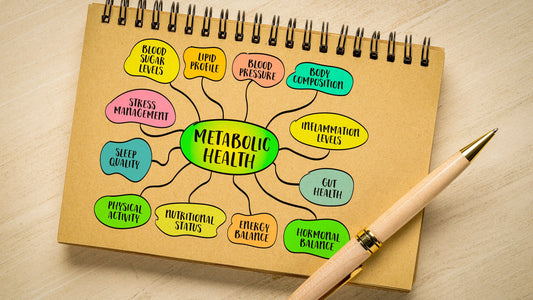 BLOOD
SUGAR
LEVELS
LIPID
PROFILE
BLOOD
PRESSURE
BODY
COMPOSITION
STRESS
MANAGEMENT
METABOLIC
HEALTH
INFLAMMATION
LEVELS
SLEEP
QUALITY
GUT
HEALTH
PHYSICAL
ACTIVITY
NUTRITIONAL
STATUS
ENERGY
BALANCE
HORMONAL
BALANCE